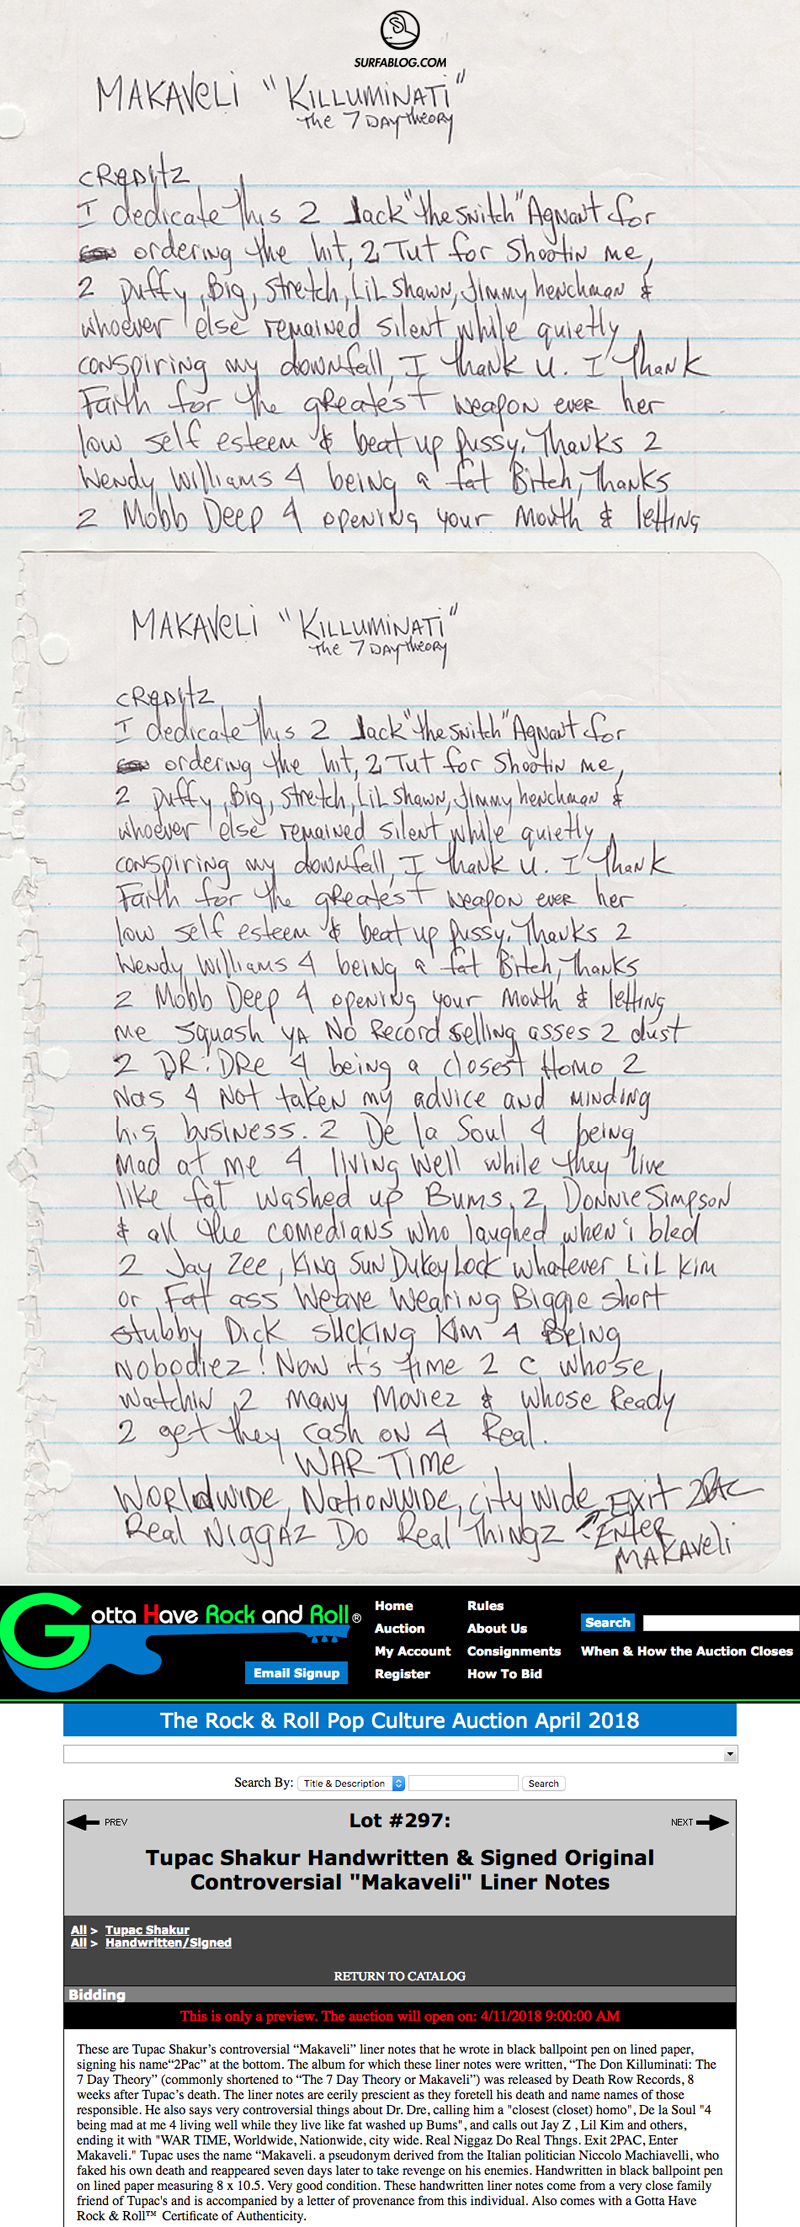 SL
SURFABLOG.COM
MAKAVELI "KILLUMINATI"
The 7 DAY Theory
CREDITZ
I dedicate this 2 Jack "the snitch" Agnant for
ordering the hit, 2 Tut for Shootin me,
2 Puffy, Big, Stretch, LiL Shawn, Jimmy henchman &
whoever else remained silent while quietly
conspiring my downfall, I thank u. I thank
Faith for the greatest weapon ever her
low self esteem & beat up pussy. Thanks 2
Wendy Williams 4 being a fat Bitch, Thanks
2 Mobb Deep 4 opening your mouth & letting
MAKAVELI "KILLUMINATI"
The 7 DAY Theory
CREDITZ
I dedicate this 2 Jack "the snitch" Agnant for
ordering the hit, 2 Tut for Shootin me,
2 Puffy, Big, Stretch, LiL Shawn, Jimmy henchman &
whoever else remained silent while quietly
conspiring my downfall, I thank u. I thank
Faith for the greatest weapon ever her
low self esteem & beat up pussy. Thanks 2
Wendy Williams 4 being a fat Bitch, Thanks
2 Mobb Deep 4 opening your mouth & letting
me squash YA NO Record selling asses 2 dust
2 DR. DRE 4 being a closest Homo 2
Nas 4 Not taken my advice and minding
his business. 2 De la Soul 4 being
mad at me 4 living well while they live
like fat washed up Bums, 2 Donnie Simpson
& all the comedians who laughed when i bled
2 Jay Zee, King Sun Dukey Lock whatever LiL Kim
or Fat ass Weave Wearing Biggie short
stubby Dick sucking Kim 4 Being
Nobodiez! Now it's time 2 C whose
watchin 2 many Moviez & whose Ready
2 get they cash on 4 Real.
WAR TIME
Worldwide, Nationwide, city wide Exit 2PAC
Real Niggaz Do Real Thingz ENTER
MAKAVELI
Gotta Have Rock and Roll®
Email Signup
Home
Auction
My Account
Register
Rules
About Us
Consignments
How To Bid
Search
When & How the Auction Closes
The Rock & Roll Pop Culture Auction April 2018
Search By: Title & Description Search
PREV Lot #297: NEXT
Tupac Shakur Handwritten & Signed Original
Controversial "Makaveli" Liner Notes
All > Tupac Shakur
All > Handwritten/Signed
RETURN TO CATALOG
Bidding
This is only a preview. The auction will open on: 4/11/2018 9:00:00 AM
These are Tupac Shakur's controversial “Makaveli” liner notes that he wrote in black ballpoint pen on lined paper,
signing his name“2Pac” at the bottom. The album for which these liner notes were written, “The Don Killuminati: The
7 Day Theory” (commonly shortened to “The 7 Day Theory or Makaveli”) was released by Death Row Records, 8
weeks after Tupac’s death. The liner notes are eerily prescient as they foretell his death and name names of those
responsible. He also says very controversial things about Dr. Dre, calling him a "closest (closet) homo", De la Soul "4
being mad at me 4 living well while they live like fat washed up Bums", and calls out Jay Z , Lil Kim and others,
ending it with "WAR TIME, Worldwide, Nationwide, city wide. Real Niggaz Do Real Thngs. Exit 2PAC, Enter
Makaveli." Tupac uses the name “Makaveli. a pseudonym derived from the Italian politician Niccolo Machiavelli, who
faked his own death and reappeared seven days later to take revenge on his enemies. Handwritten in black ballpoint pen
on lined paper measuring 8 x 10.5. Very good condition. These handwritten liner notes come from a very close family
friend of Tupac's and is accompanied by a letter of provenance from this individual. Also comes with a Gotta Have
Rock & Roll™ Certificate of Authenticity.